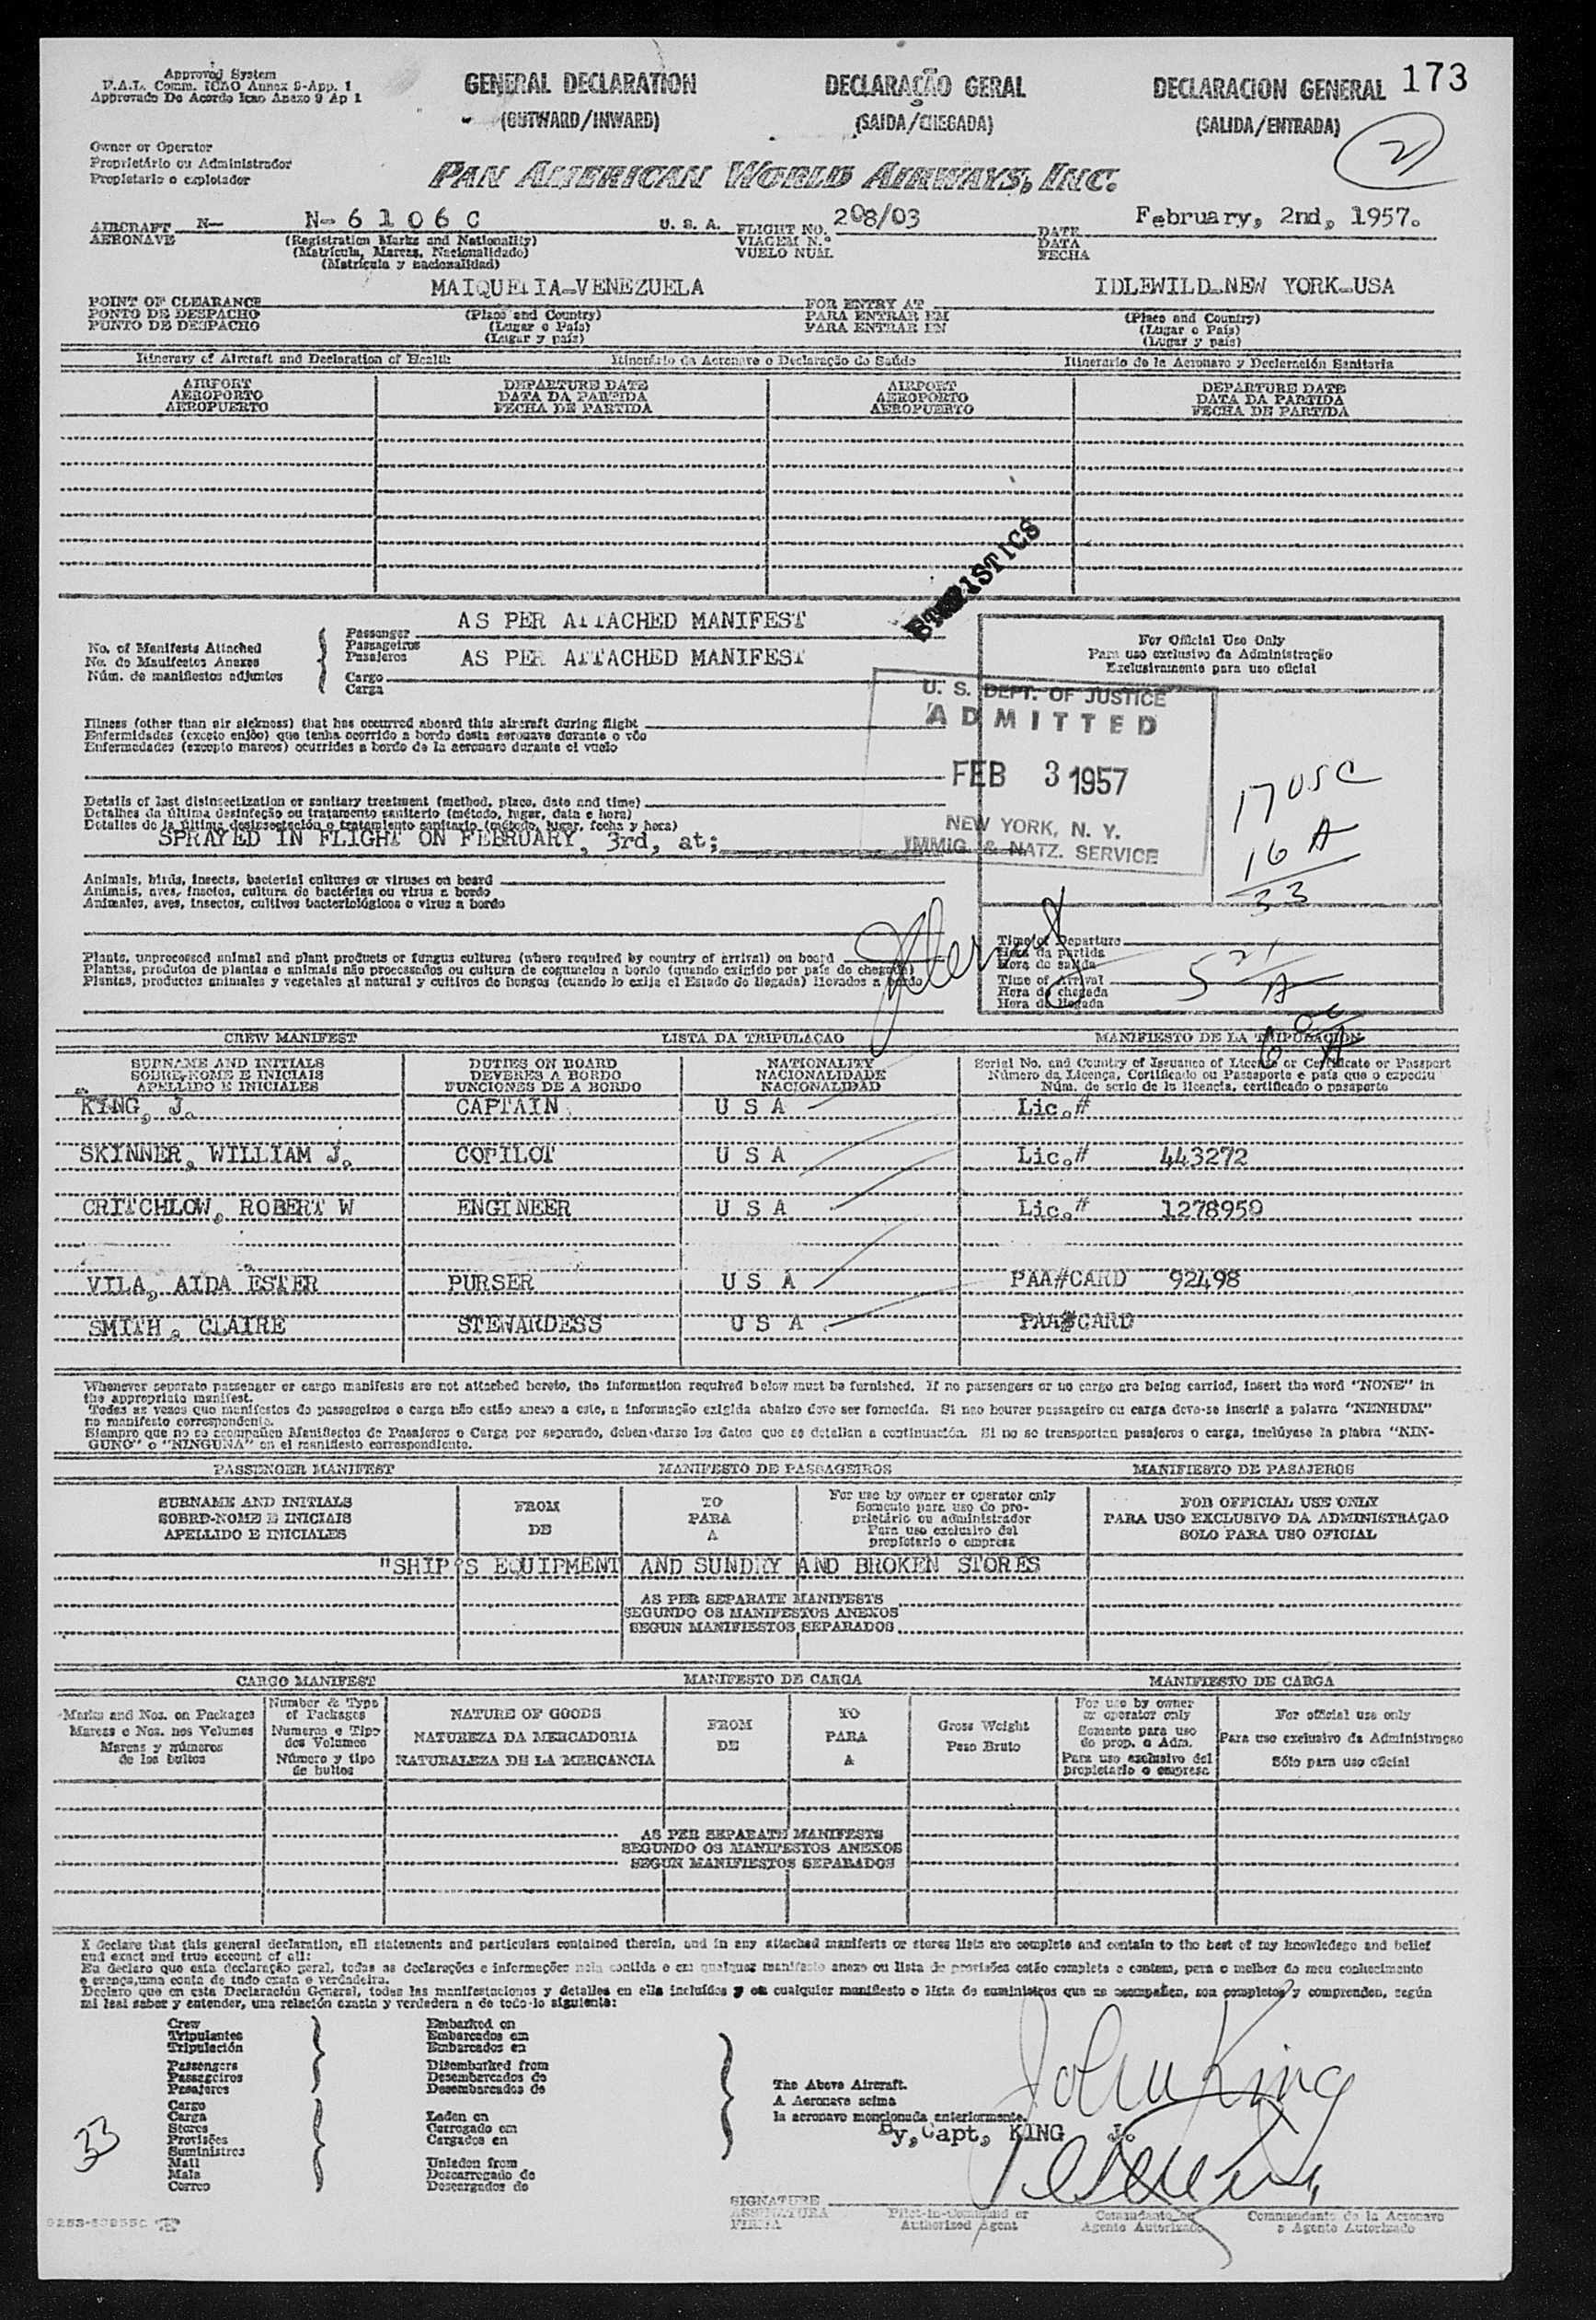 Approved System
F.A.L. Comm. ICAO Annex 9-App. 1
Approvado De Acordo Icao Anexo 9 Ap 1
GENERAL DECLARATION
(OUTWARD/INWARD)
DECLARAÇÃO GERAL
(SAIDA/CHEGADA)
DECLARACION GENERAL
(SALIDA/ENTRADA)
173
2
Owner or Operator
Proprietário ou Administrador
Propietario o explotador
PAN AMERICAN WORLD AIRWAYS, INC.
AIRCRAFT N- N-6106C U. S. A. FLIGHT NO. 208/03 DATE February, 2nd, 1957.
AERONAVE (Registration Marks and Nationality) VIAGEM N.º DATA
(Matrícula, Marcas, Nacionalidade) VUELO NUM. FECHA
(Matrícula y nacionalidad)
POINT OF CLEARANCE MAIQUETIA-VENEZUELA FOR ENTRY AT IDLEWILD-NEW YORK-USA
PONTO DE DESPACHO (Place and Country) PARA ENTRAR EM (Place and Country)
PUNTO DE DESPACHO (Lugar o País) PARA ENTRAR EN (Lugar o País)
(Lugar y país) (Lugar y país)
Itinerary of Aircraft and Declaration of Health Itinerário da Aeronave o Declaração do Saúde Itinerario de la Aeronave y Declaración Sanitaria
AIRPORT DEPARTURE DATE AIRPORT DEPARTURE DATE
AEROPORTO DATA DA PARTIDA AEROPORTO DATA DA PARTIDA
AEROPUERTO FECHA DE PARTIDA AEROPUERTO FECHA DE PARTIDA
STATISTICS
No. of Manifests Attached
No. do Manifestos Anexos
Núm. de manifiestos adjuntos
Passenger AS PER ATTACHED MANIFEST
Passageiros
Pasajeros
Cargo AS PER ATTACHED MANIFEST
Carga
For Official Use Only
Para uso exclusivo da Administração
Exclusivamente para uso oficial
U. S. DEPT. OF JUSTICE
ADMITTED
FEB 3 1957
NEW YORK, N. Y.
IMMIG. & NATZ. SERVICE
17 USC
16 A
33
Illness (other than air sickness) that has occurred aboard this aircraft during flight
Enfermidades (exceto enjôo) que tenha ocorrido a bordo desta aeronave durante o vôo
Enfermedades (excepto mareos) ocurridas a bordo de la aeronave durante el vuelo
Details of last disinsectization or sanitary treatment (method, place, date and time)
Detalhes da última desinfeção ou tratamento sanitario (método, lugar, data e hora)
Detalles de la última desinsectación o tratamiento sanitario (método, lugar, fecha y hora)
SPRAYED IN FLIGHT ON FEBRUARY, 3rd, at;
Animals, birds, insects, bacterial cultures or viruses on board
Animais, aves, insectos, cultura de bactérias ou virus a bordo
Animales, aves, insectos, cultivos bacteriológicos o virus a bordo
Plants, unprocessed animal and plant products or fungus cultures (where required by country of arrival) on board
Plantas, produtos de plantas e animais não processados ou cultura de cogumelos a bordo (quando exigido por país do chegada)
Plantas, productos animales y vegetales al natural y cultivos de hongos (cuando lo exija el Estado de llegada) llevados a bordo
Time of Departure
Hora da partida
Hora de salida
Time of Arrival 5 21 A
Hora da chegada
Hora de llegada
CREW MANIFEST LISTA DA TRIPULAÇAO MANIFIESTO DE LA TRIPULACION
SURNAME AND INITIALS DUTIES ON BOARD NATIONALITY Serial No. and Country of Issuance of License or Certificate or Passport
SOBRE-NOME E INICIAIS DEVERES A BORDO NACIONALIDADE Número da Licença, Certificado ou Passaporte e país que o expediu
APELLIDO E INICIALES FUNCIONES DE A BORDO NACIONALIDAD Núm. de serie de la licencia, certificado o pasaporte
KING, J. CAPTAIN U S A Lic.#
SKINNER, WILLIAM J. COPILOT U S A Lic.# 443272
CRITCHLOW, ROBERT W ENGINEER U S A Lic.# 1278950
VILA, AIDA ESTER PURSER U S A PAA#CARD 92498
SMITH, CLAIRE STEWARDESS U S A PAA#CARD
Whenever separate passenger or cargo manifests are not attached hereto, the information required below must be furnished. If no passengers or no cargo are being carried, insert the word "NONE" in
the appropriate manifest.
Todas as vezes que manifestos do passageiros e carga não estão anexo a este, a informação exigida abaixo deve ser fornecida. Si nao houver passageiro ou carga deve-se inscrir a palavra "NENHUM"
no manifesto correspondente.
Siempre que no se acompañen Manifiestos de Pasajeros o Carga por separado, deben darse los datos que se detallan a continuación. Si no se transportan pasajeros o carga, inclúyase la plabra "NIN-
GUNO" o "NINGUNA" en el manifiesto correspondiente.
PASSENGER MANIFEST MANIFESTO DE PASSAGEIROS MANIFIESTO DE PASAJEROS
SURNAME AND INITIALS
SOBRE-NOME E INICIAIS
APELLIDO E INICIALES
FROM
DE
TO
PARA
A
For use by owner or operator only
Somente para uso do pro-
prietário ou administrador
Para uso exclusivo del
propietario o empresa
FOR OFFICIAL USE ONLY
PARA USO EXCLUSIVO DA ADMINISTRAÇAO
SOLO PARA USO OFICIAL
"SHIP'S EQUIPMENT AND SUNDRY AND BROKEN STORES
AS PER SEPARATE MANIFESTS
SEGUNDO OS MANIFESTOS ANEXOS
SEGUN MANIFIESTOS SEPARADOS
CARGO MANIFEST MANIFESTO DE CARGA MANIFIESTO DE CARGA
Marks and Nos. on Packages
Marcas e Nos. nos Volumes
Marcas y números
de los bultos
Number & Type
of Packages
Numeros e Tipo
dos Volumes
Número y tipo
de bultos
NATURE OF GOODS
NATUREZA DA MERCADORIA
NATURALEZA DE LA MERCANCIA
FROM
DE
TO
PARA
A
Gross Weight
Peso Bruto
For use by owner
or operator only
Somente para uso
do prop. o Adm.
Para uso exclusivo del
propietario o empresa
For official use only
Para uso exclusivo da Administraçao
Sólo para uso oficial
AS PER SEPARATE MANIFESTS
SEGUNDO OS MANIFESTOS ANEXOS
SEGUN MANIFIESTOS SEPARADOS
I declare that this general declaration, all statements and particulars contained therein, and in any attached manifests or stores lists are complete and contain to the best of my knowledege and belief
and exact and true account of all:
Eu declaro que esta declaração geral, todas as declarações e informações nela contida e em qualquer manifesto anexo ou lista de provisões estão completa e contem, para o melhor do meu conhecimento
e crença, uma conta de tudo exata e verdadeira.
Declaro que en esta Declaración General, todas las manifestaciones y detalles en ella incluídos y en cualquier manifiesto o lista de suministros que se acompañen, son completos y comprenden, según
mi leal saber y entender, una relación exacta y verdadera a de todo lo siguiente:
Crew
Tripulantes
Tripulación
Passengers
Passageiros
Pasajeros
Cargo
Carga
Stores
Provisões
Suministros
Mail
Mala
Correo
33
Embarked on
Embarcados em
Embarcados en
Disembarked from
Desembarcados do
Desembarcados de
Laden on
Carregado em
Cargados en
Unladen from
Descarregado do
Descargados de
The Above Aircraft.
A Aeronave acima
la aeronave mencionada anteriormente.
By, Capt, KING J.
John King
SIGNATURE
ASSINATURA
FIRMA
Pilot-in-Command or
Authorized Agent
Comandante ou
Agente Autorizado
Commandante de la Aeronave
o Agente Autorizado